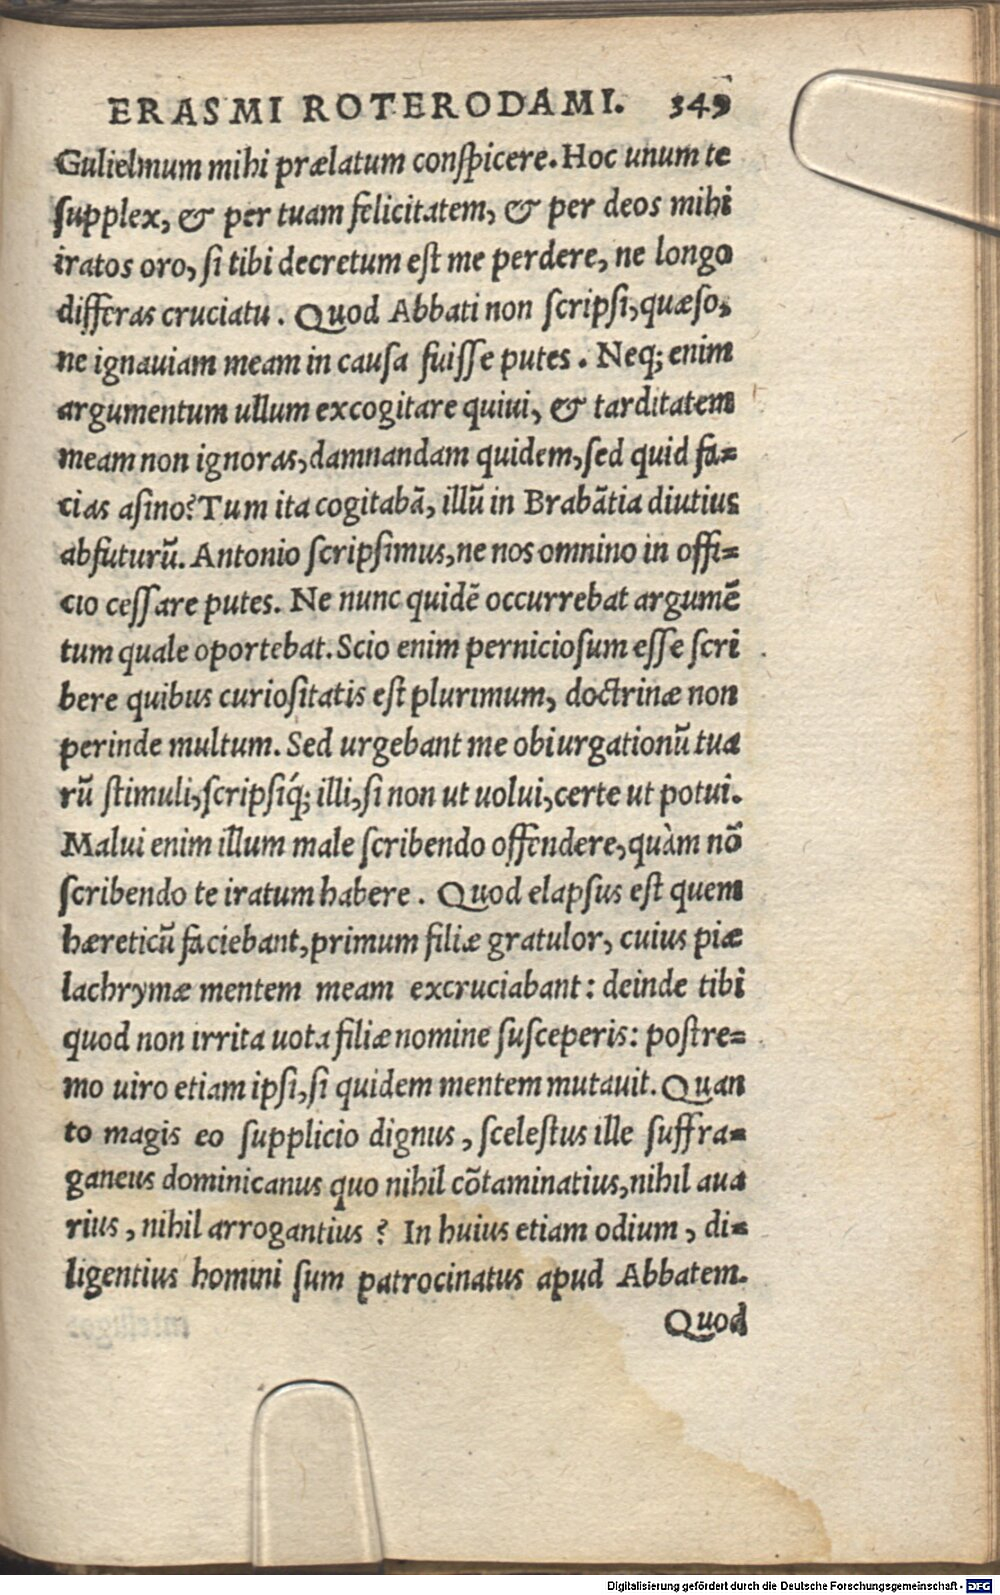 ERASMI ROTERODAMI. 349
Gulielmum mihi prælatum conſpicere. Hoc unum te
ſupplex, & per tuam felicitatem, & per deos mihi
iratos oro, ſi tibi decretum eſt me perdere, ne longo
differas cruciatu. Quod Abbati non ſcripſi, quæſo,
ne ignauiam meam in cauſa fuiſſe putes. Neq; enim
argumentum ullum excogitare quiui, & tarditatem
meam non ignoras, damnandam quidem, ſed quid fa=
cias aſino? Tum ita cogitabā, illū in Brabātia diutius
abfuturū. Antonio ſcripſimus, ne nos omnino in offi=
cio ceſſare putes. Ne nunc quidē occurrebat argumē
tum quale oportebat. Scio enim pernicioſum eſſe ſcri
bere quibus curioſitatis eſt plurimum, doctrinæ non
perinde multum. Sed urgebant me obiurgationū tua
rū ſtimuli, ſcripſiq́; illi, ſi non ut uolui, certe ut potui.
Malui enim illum male ſcribendo offendere, quàm nō
ſcribendo te iratum habere. Quod elapſus eſt quem
hæreticū faciebant, primum filiæ gratulor, cuius piæ
lachrymæ mentem meam excruciabant: deinde tibi
quod non irrita uota filiæ nomine ſuſceperis: poſtre=
mo uiro etiam ipſi, ſi quidem mentem mutauit. Quan
to magis eo ſupplicio dignus, ſceleſtus ille ſuffra=
ganeus dominicanus quo nihil cōtaminatius, nihil aua
rius, nihil arrogantius? In huius etiam odium, di=
ligentius homini ſum patrocinatus apud Abbatem.
Quod
Digitalisierung gefördert durch die Deutsche Forschungsgemeinschaft - DFG